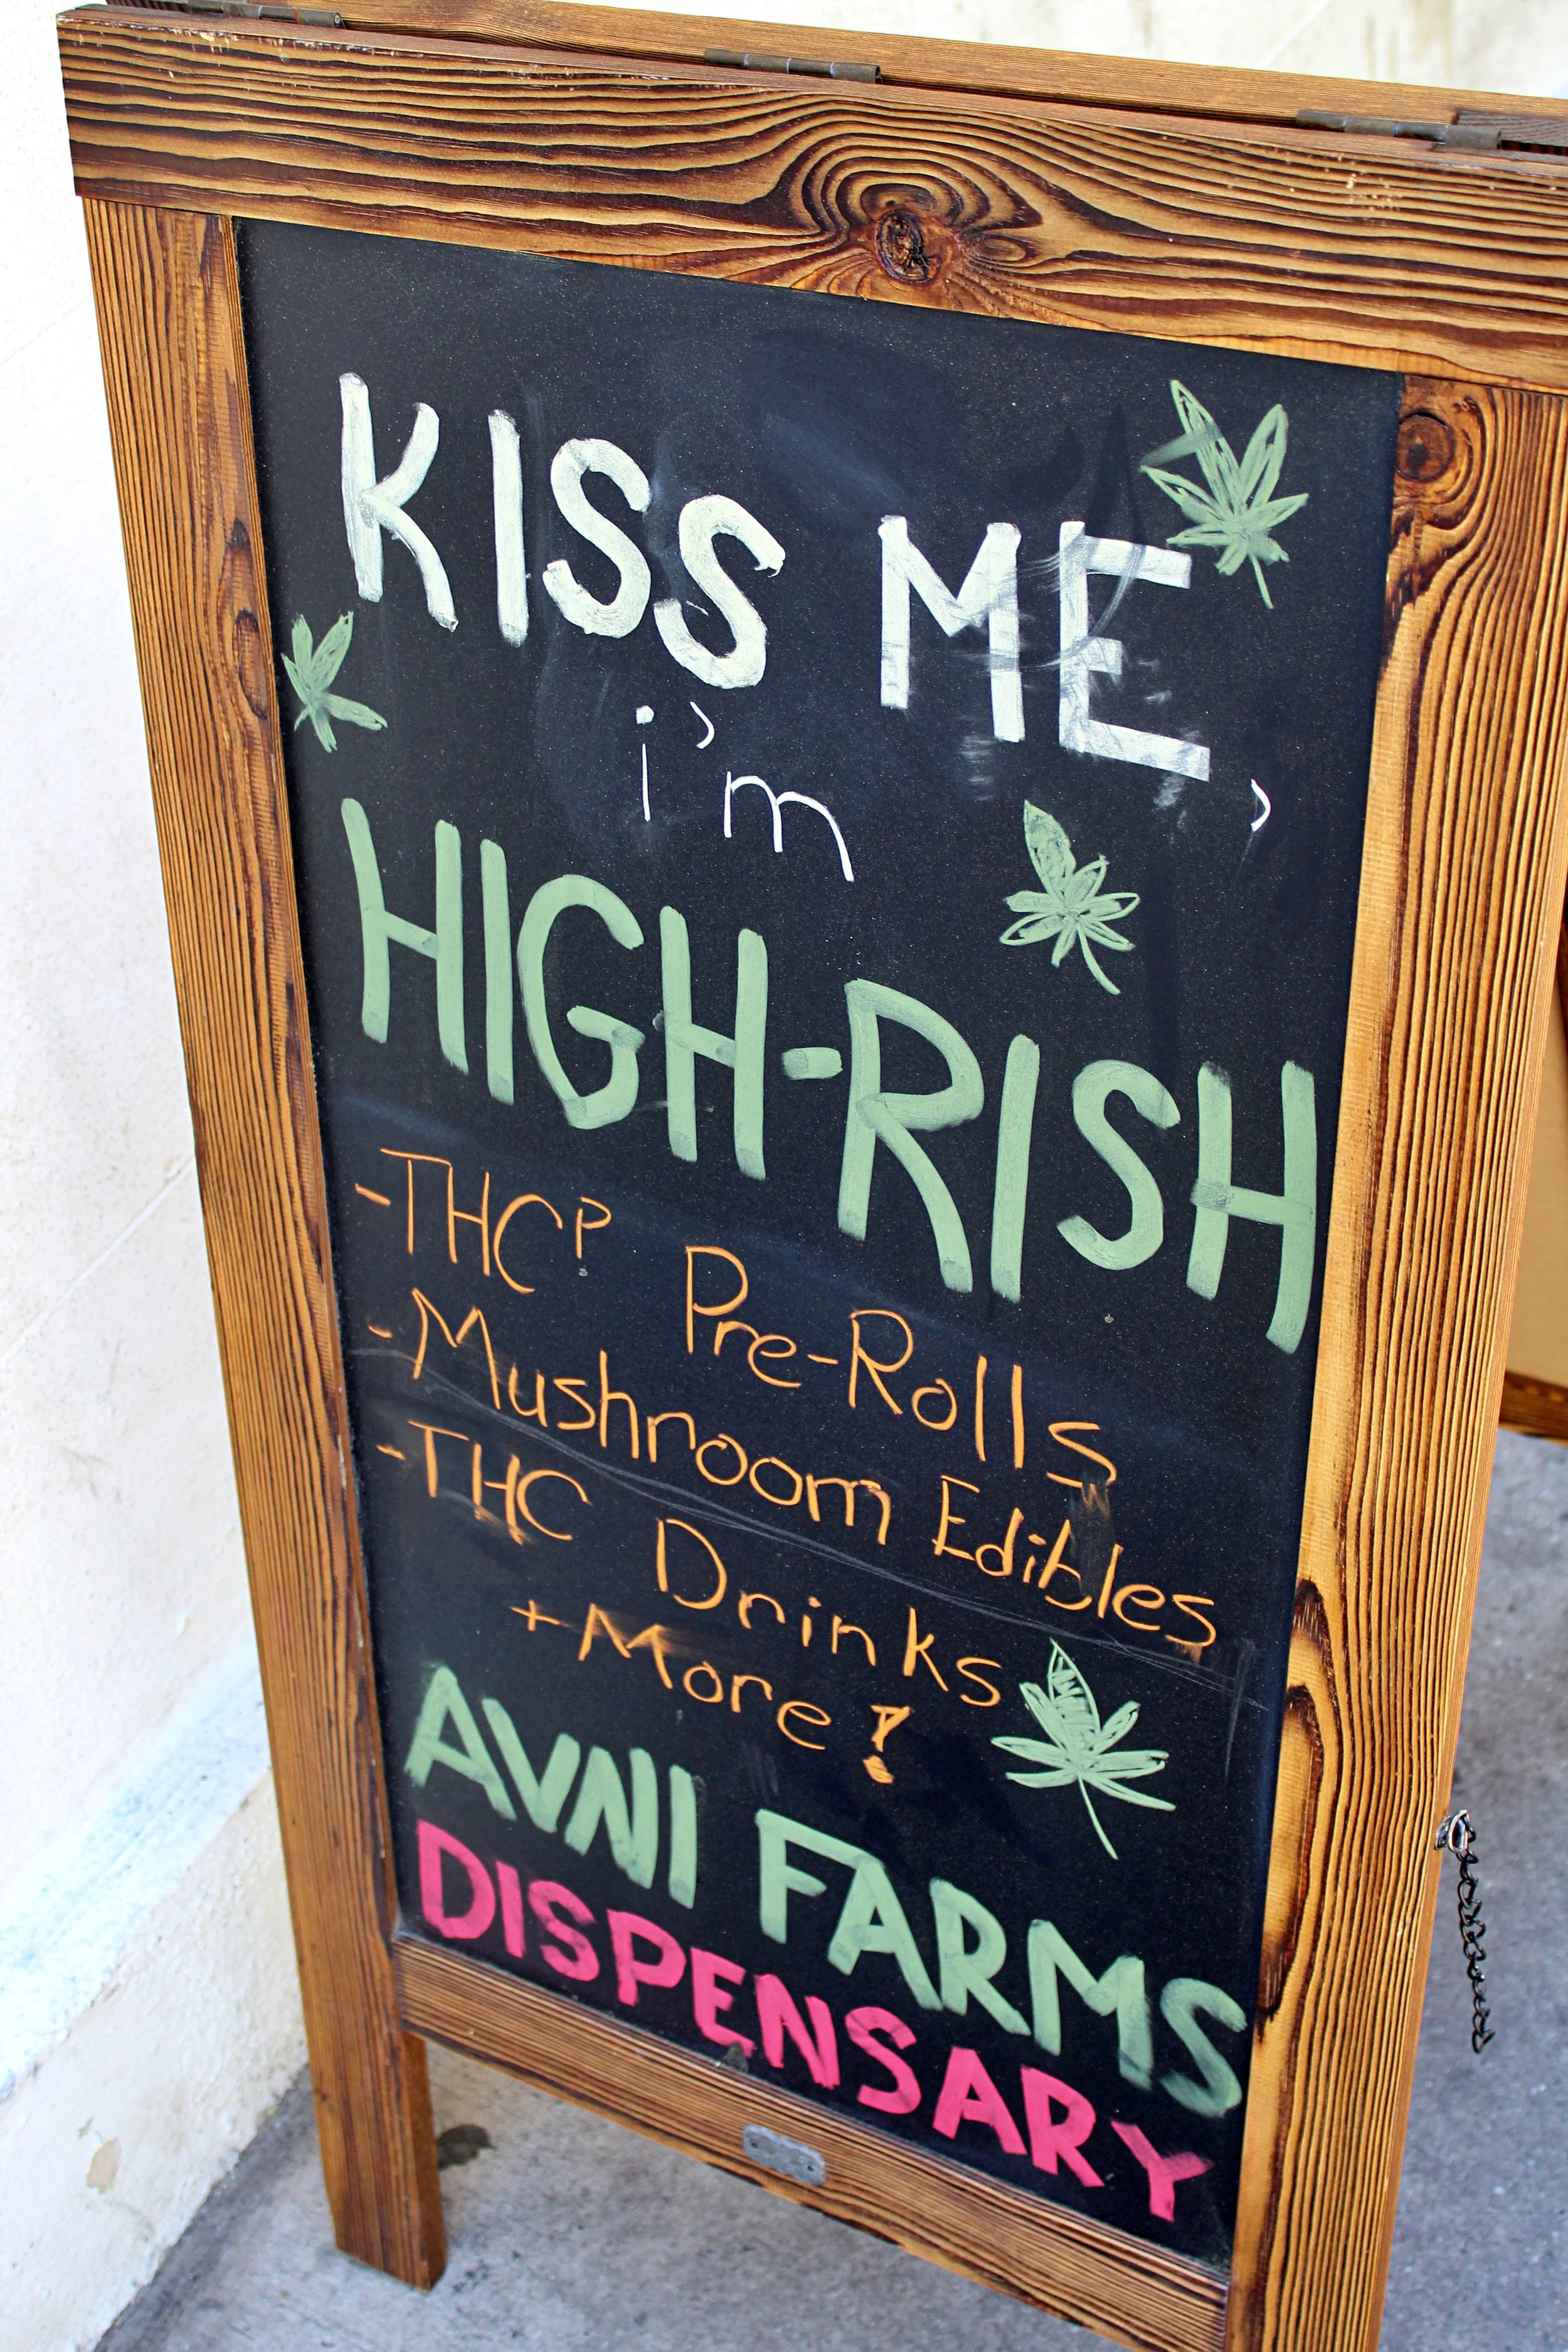 KISS ME,
i'm
HIGH-RISH
-THCP Pre-Rolls
-Mushroom Edibles
-THC Drinks
+More!
AVNI FARMS
DISPENSARY